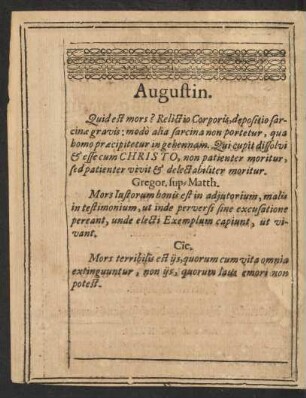 Augustin.
Quid est mors? Relictio Corporis, depositio sar-
cinæ gravis: modò alia sarcina non portetur, qua
homo præcipitetur in gehennam. Qui cupit dissolvi
& esse cum CHRISTO, non patienter moritur,
sed patienter vivit & delectabiliter moritur.
Gregor. sup. Matth.
Mors Iustorum bonis est in adjutorium, malis
in testimonium, ut inde perversi sine excusatione
pereant, unde electi Exemplum capiunt, ut vi-
vant.
Cic.
Mors terribilis est ijs, quorum cum vita omnia
extinguuntur, non ijs, quorum laus emori non
potest.